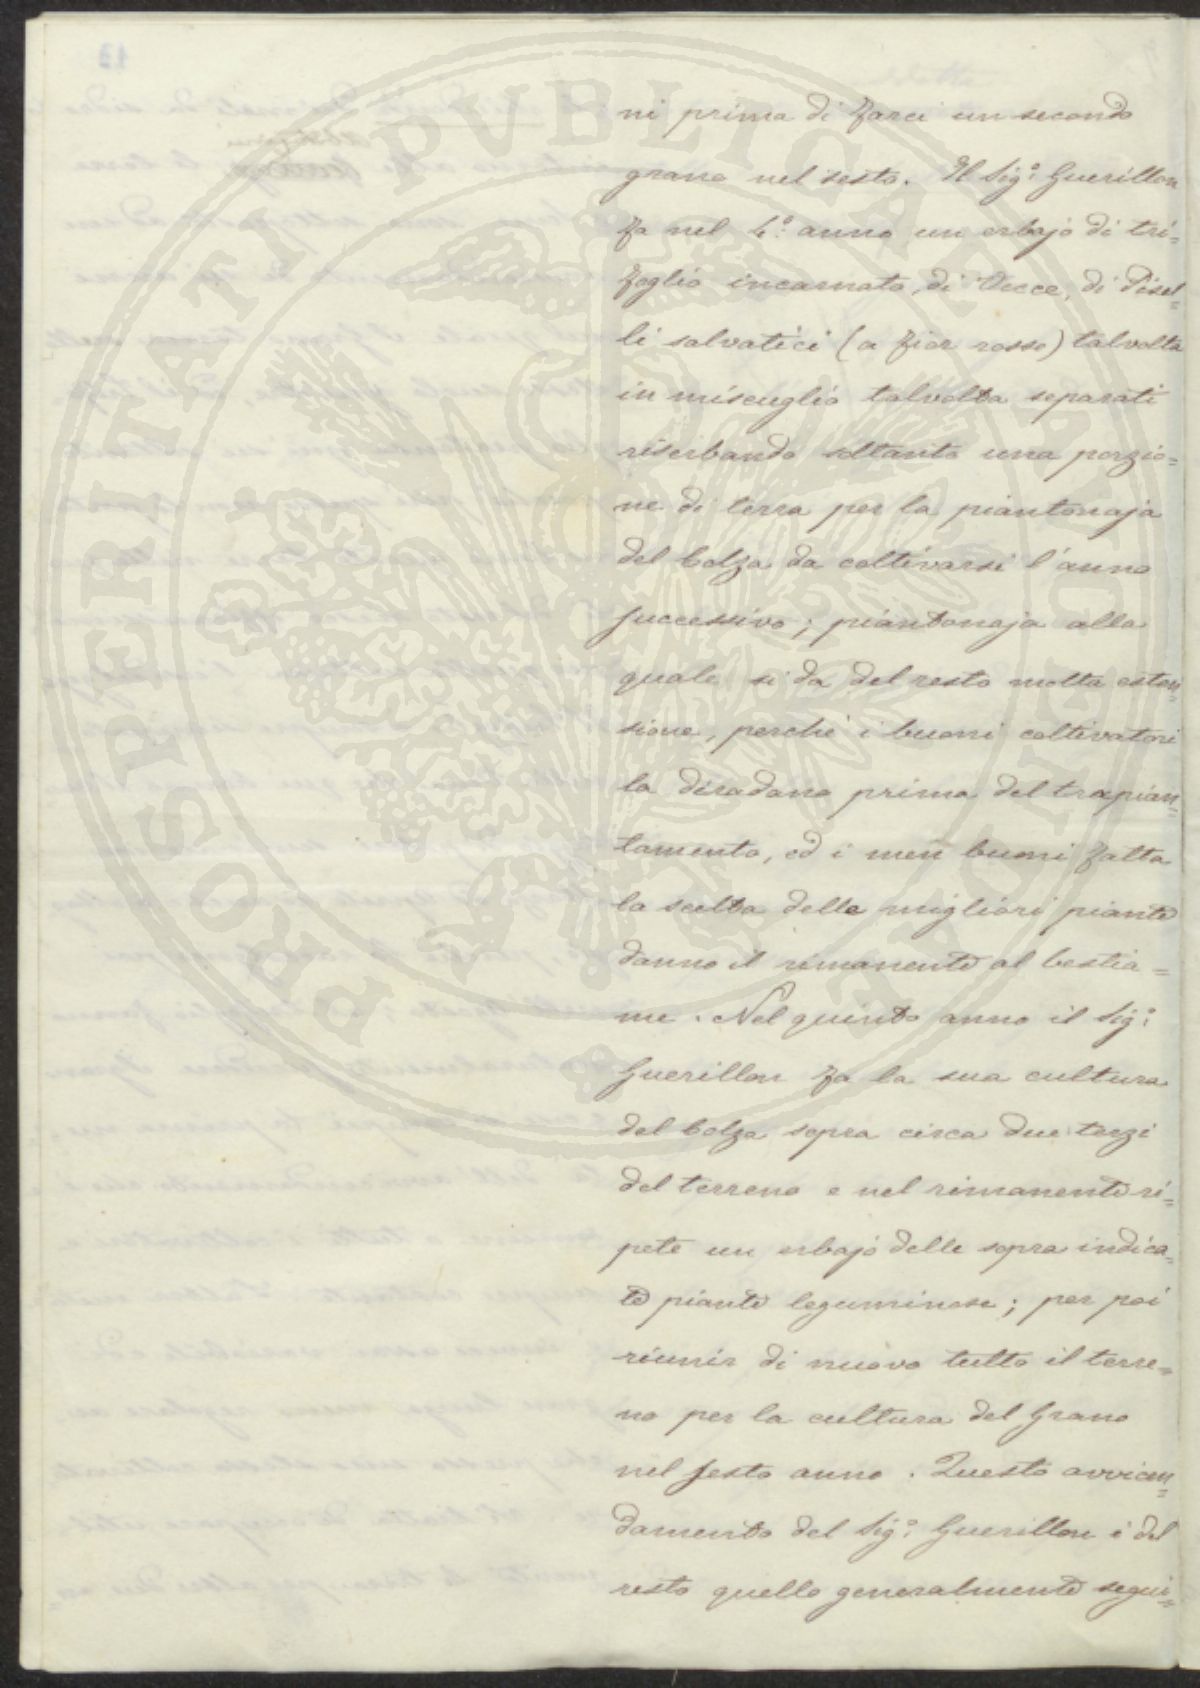 ni prima di farci un secondo
grano nel sesto. Il Sig.º Guerillon
fa nel 4.º anno un erbajo di tri=
foglio incarnato, di Vecce, di Pisel=
li salvatici (a fior rosso) talvolta
in miscuglio talvolta separati
riserbando soltanto una porzio=
ne di terra per la piantonaja
del Colza da coltivarsi l'anno
successivo; piantonaja alla
quale si da del resto molta esten=
sione, perchè i buoni coltivatori
la diradano prima del trapian=
tamento, ed i men buoni fatta
la scelta delle migliori piante
danno il rimanente al bestia=
me. Nel quinto anno il Sig.º
Guerillon fa la sua cultura
del Colza sopra circa due terzi
del terreno e nel rimanente ri=
pete un erbajo delle sopra indica=
te piante leguminose; per poi
riunir di nuovo tutto il terre=
no per la cultura del Grano
nel sesto anno. Questo avvicen=
damento del Sig.º Guerillon è del
resto quello generalmente segui=
PROSPERITATI PUBLICAE AUGENDAE